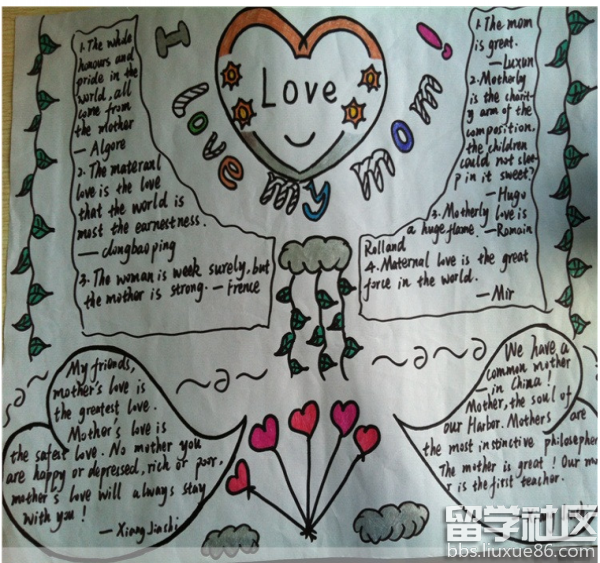 I love my mom!
Love
1. The whole
honours and
pride in the
world, all
come from
the mother
— Algore
2. The materanl
love is the love
that the world is
most the earnestness.
— dongbaoping
3. The woman is weak surely, but
the mother is strong. — Frence
1. The mom
is great.
— Luxun
2. Motherly
is the charit-
y arm of the
composition.
the children
could not slee-
p in it sweet?
— Hugo
3. Motherly love is
a huge flame. — Romain
Rolland
4. Maternal love is the great
force in the world.
— Mir
My friends,
mother's love is
the greatest love.
Mother's love is
the safest love. No mother you
are happy or depressed, rich or poor,
mother's love will always stay
with you!
— Xiang Jinshi
We have a
common mother
— in China!
Mother, the soul of
our Harbor. Mothers are
the most instinctive philosopher
The mother is great! Our mo
r is the first teacher.
留学社区
bbs.liuxue86.com